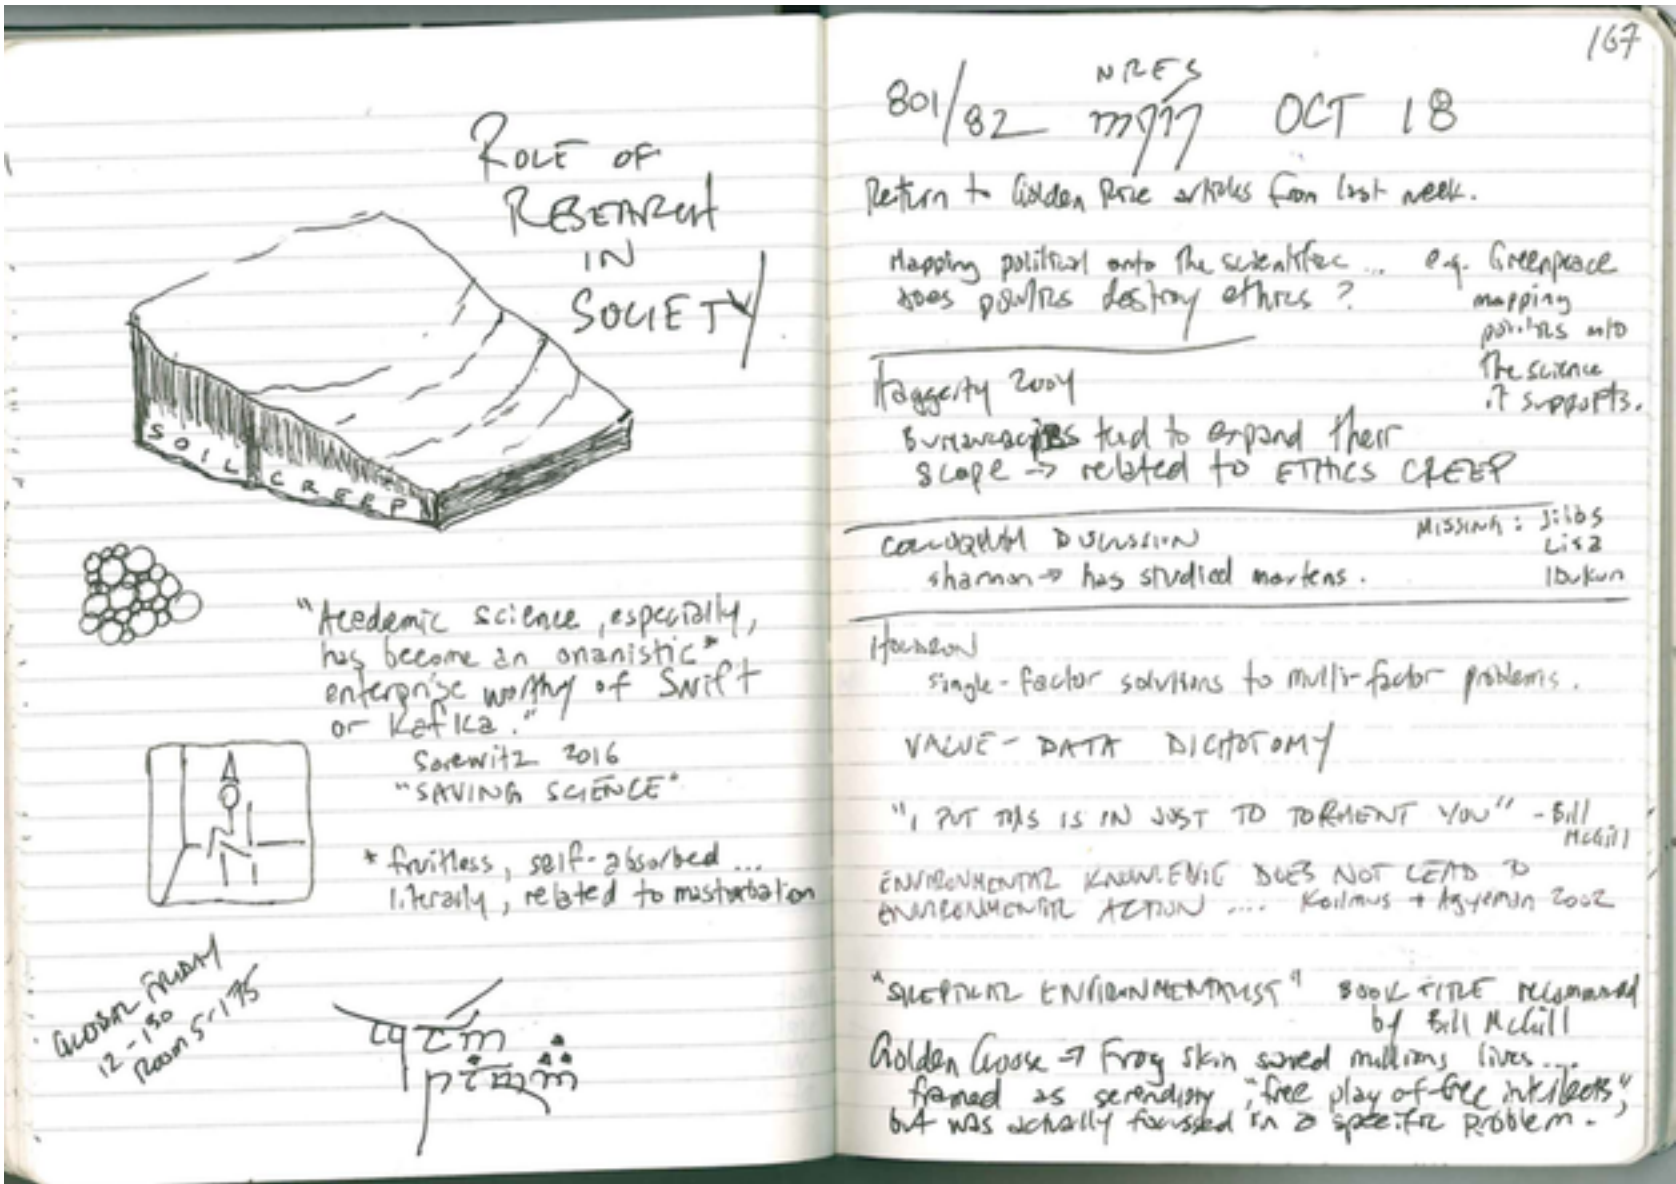 ROLE OF
RESEARCH
IN
SOCIETY
SOIL CREEP
"Academic science, especially,
has become an onanistic*
enterprise worthy of Swift
or Kafka."
Sarewitz 2016
"SAVING SCIENCE"
* fruitless, self-absorbed ...
literally, related to masturbation
GLOBAL FRIDAY
12-130
Room 5-175
167
801/82 NRES OCT 18
Return to Golden Rice articles from last week.
Mapping political onto the scientific ...
does politics destroy ethics?
e.g. Greenpeace
mapping
politics onto
the science
it supports.
Haggerty 2004
Bureaucracies tend to expand their
scope → related to ETHICS CREEP
COLLOQUIUM DISCUSSION
shannon → has studied martens.
MISSING: 
Lisa
Ibukun
single-factor solutions to multi-factor problems.
VALUE - DATA DICHOTOMY
"I PUT THIS IS IN JUST TO TORMENT YOU" - Bill
McGill
ENVIRONMENTAL KNOWLEDGE DOES NOT LEAD TO
ENVIRONMENTAL ACTION .... Kollmus + Agyeman 2002
"SKEPTICAL ENVIRONMENTALIST" BOOK TITLE recommended
by Bill McGill
Golden Goose → Frog skin saved millions lives ...
framed as serendipity, "free play of free intellects",
but was actually focussed on a specific problem.